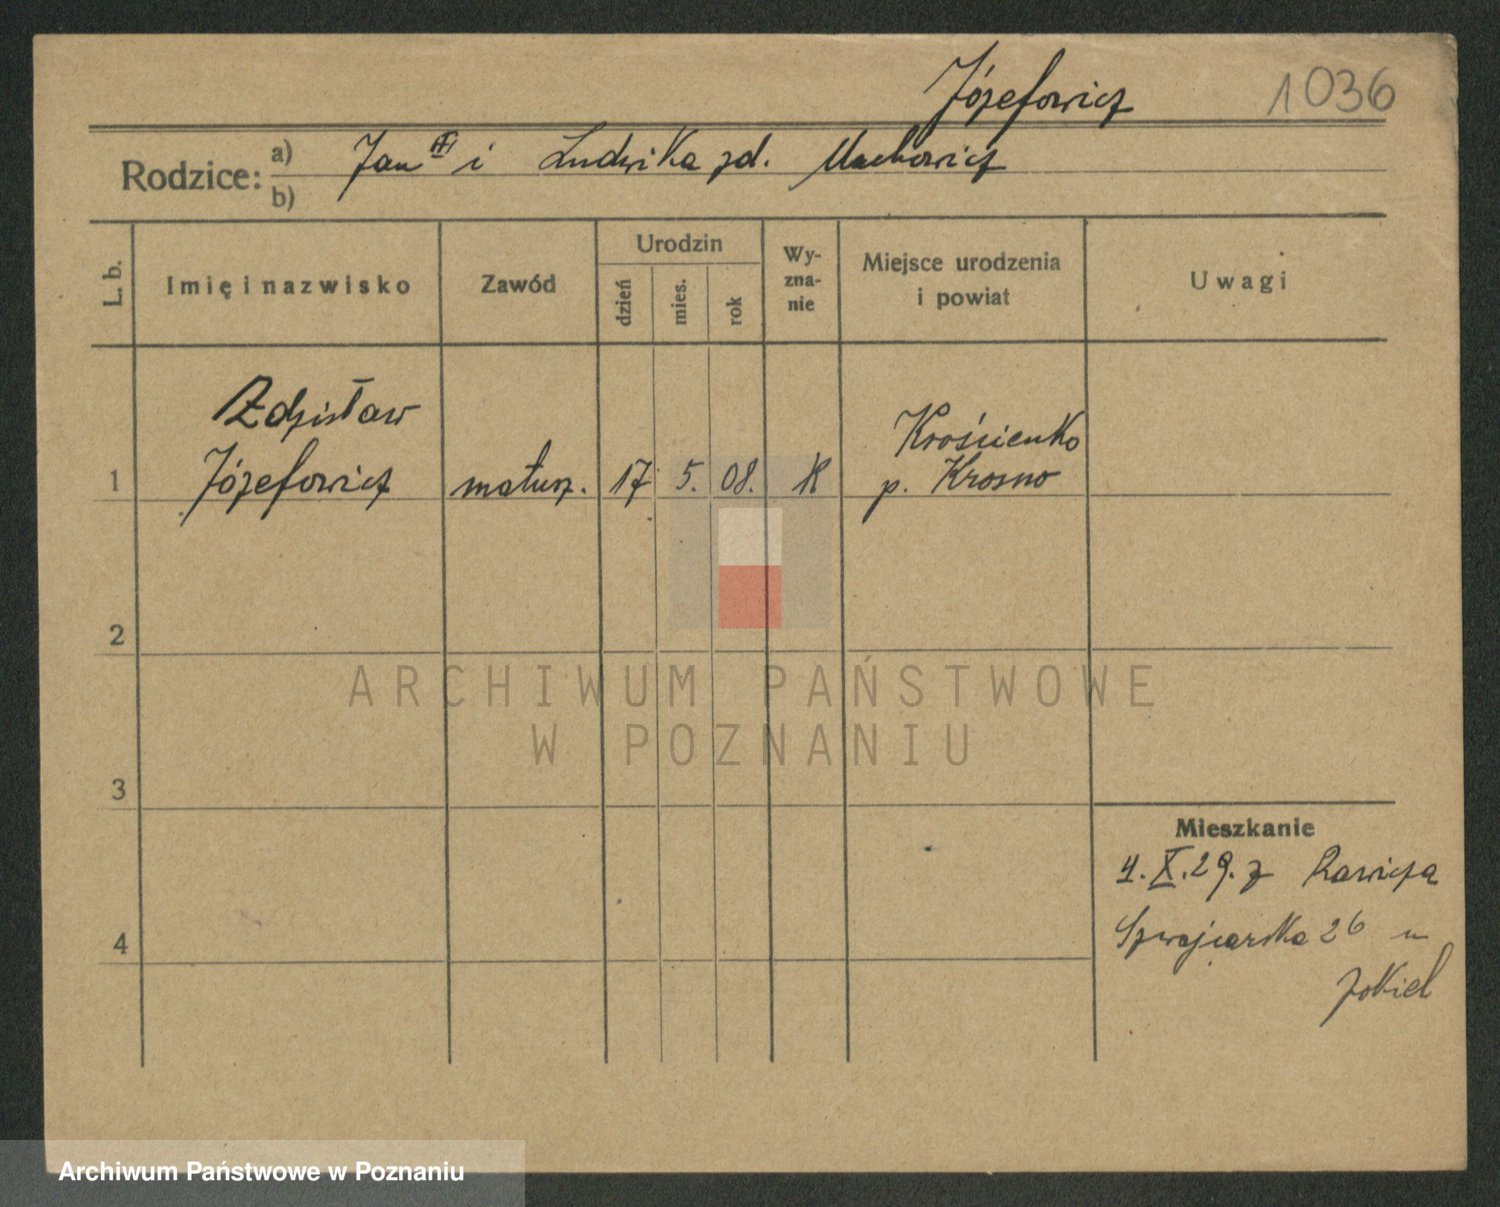 Józefowicz 1036
Rodzice: a) Jan i Ludwika zd. Machowicz
b)
L. b. Imię i nazwisko Zawód Urodzin dzień mies. rok Wy-zna-nie Miejsce urodzenia i powiat Uwagi
Zdzisław Krościenko
1 Józefowicz maturz. 17 5. 08. K p. Krosno
2
ARCHIWUM PAŃSTWOWE
W POZNANIU
3
Mieszkanie
4. X. 29. z Rawicza
4 Szwajcarska 26 u
Jokiel
Archiwum Państwowe w Poznaniu